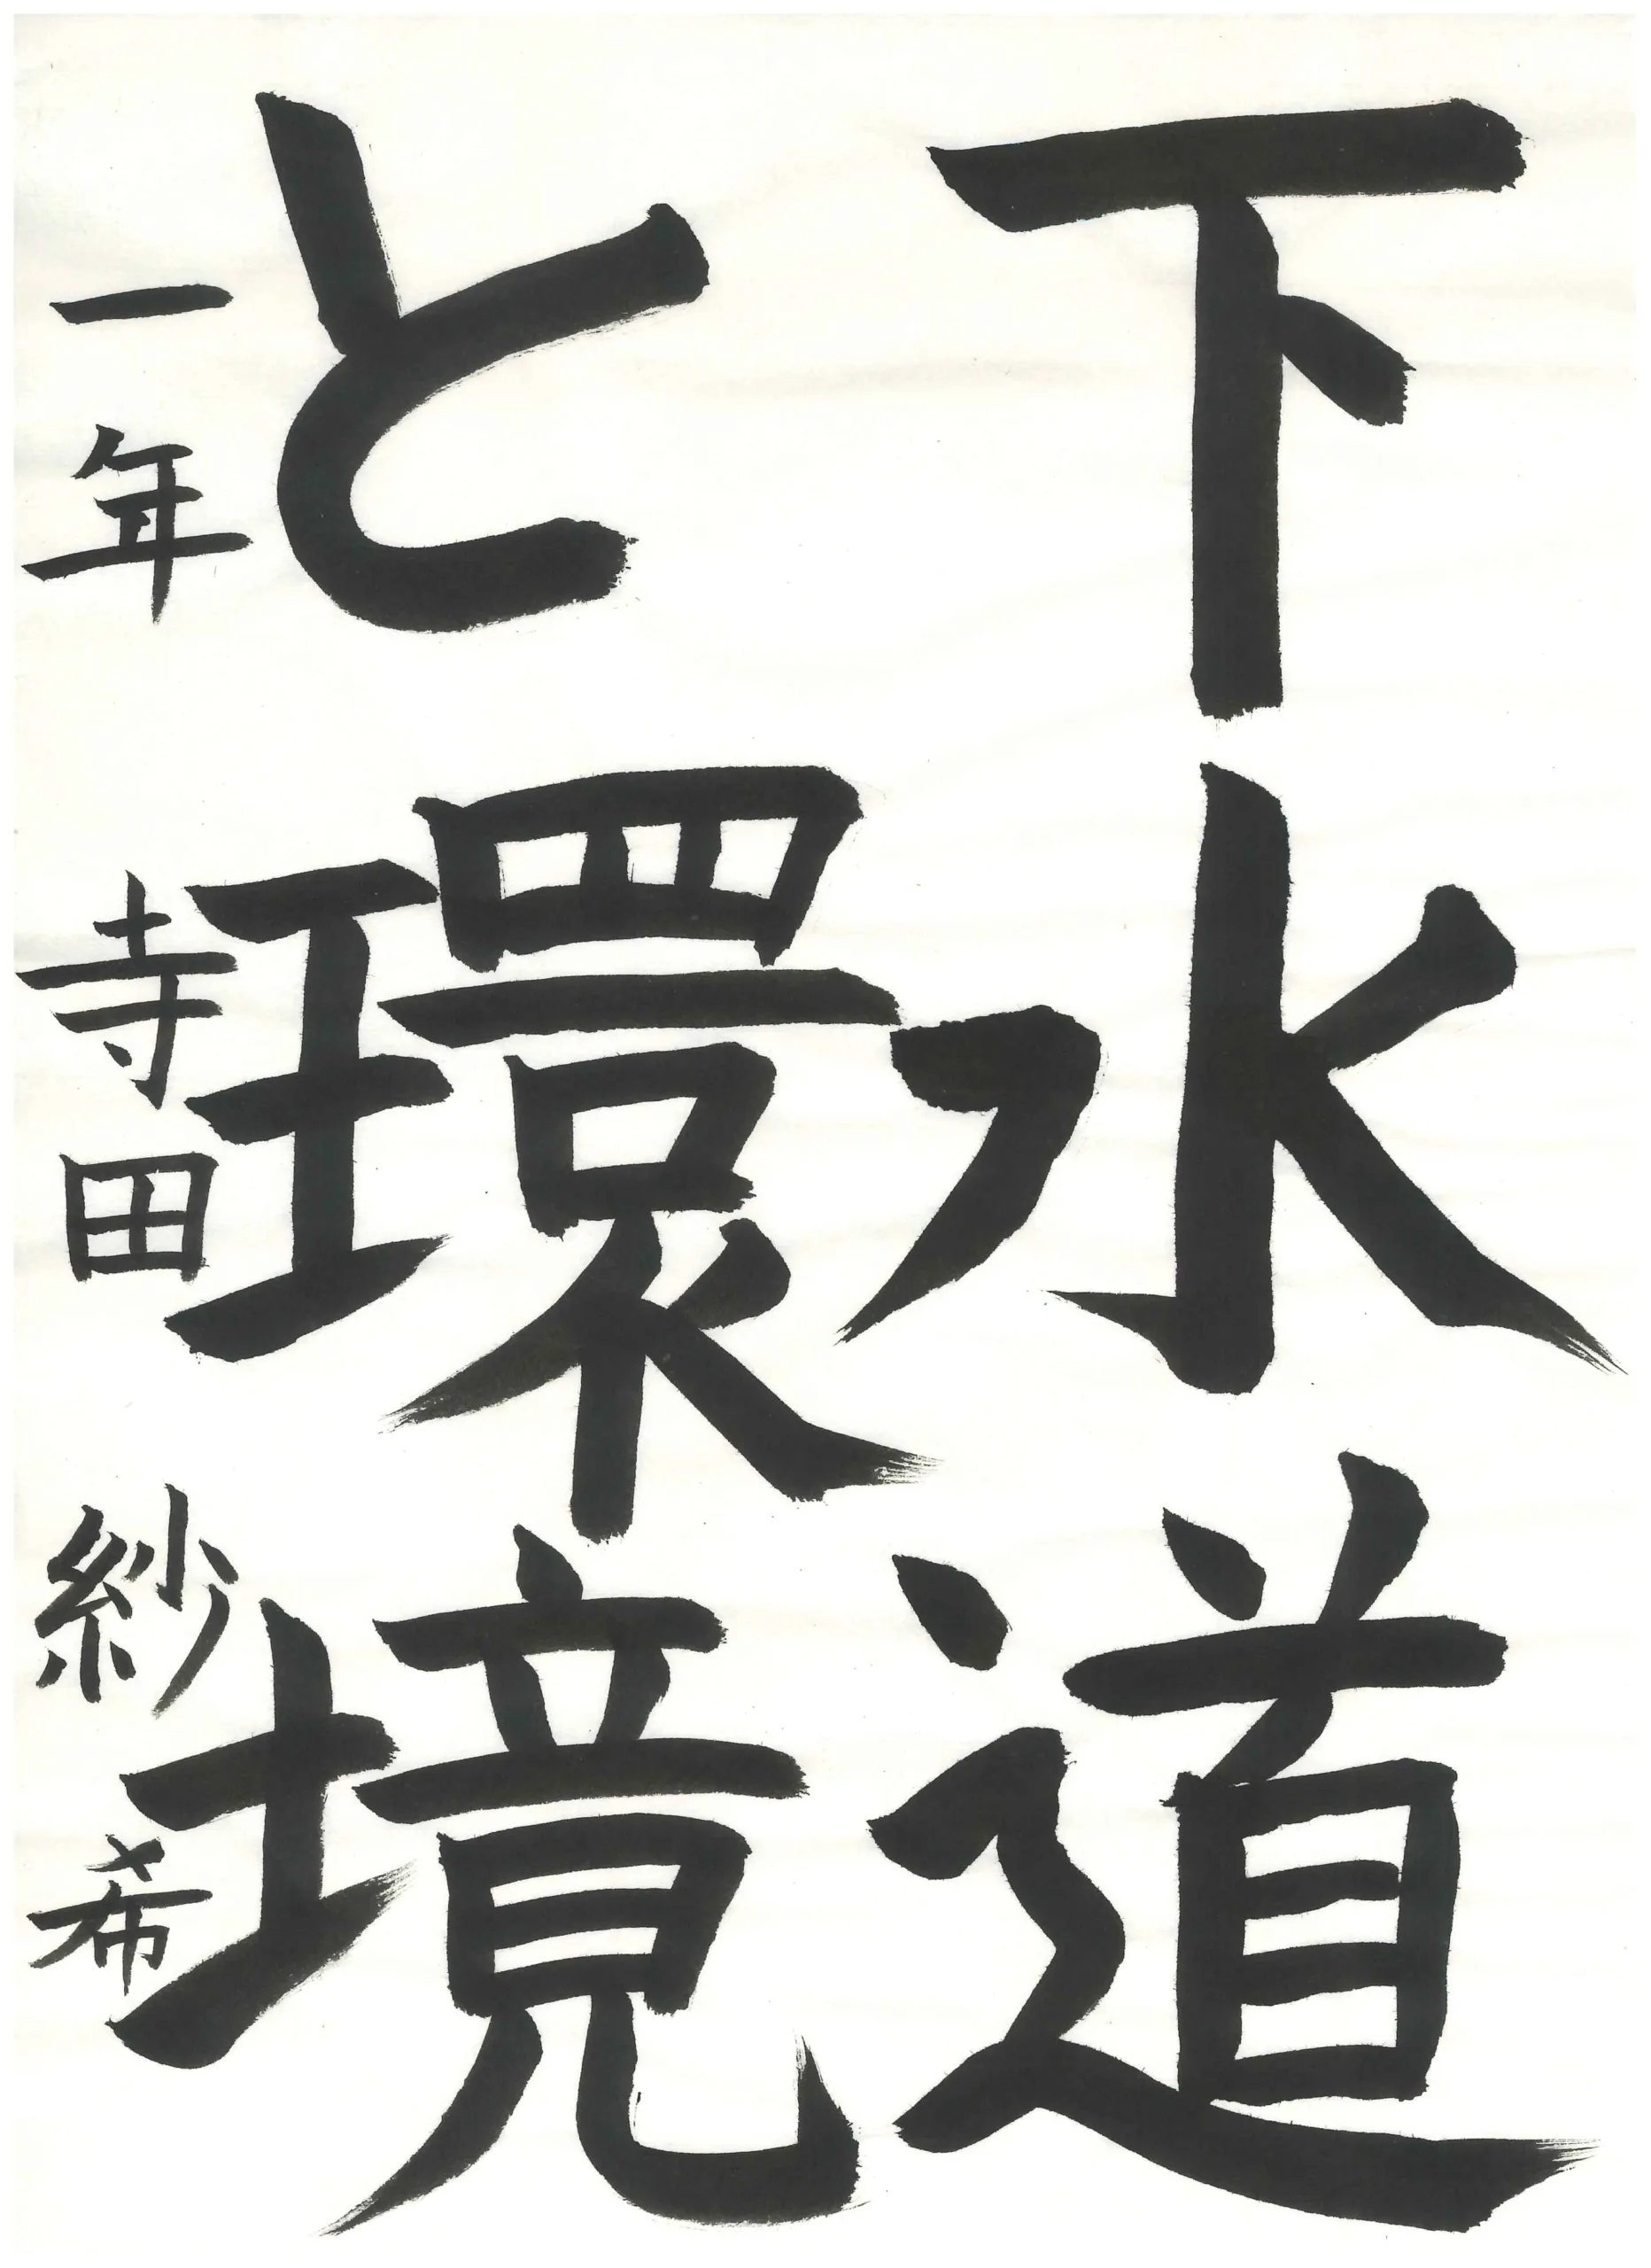 下水道
と環境
一年 寺田 紗希